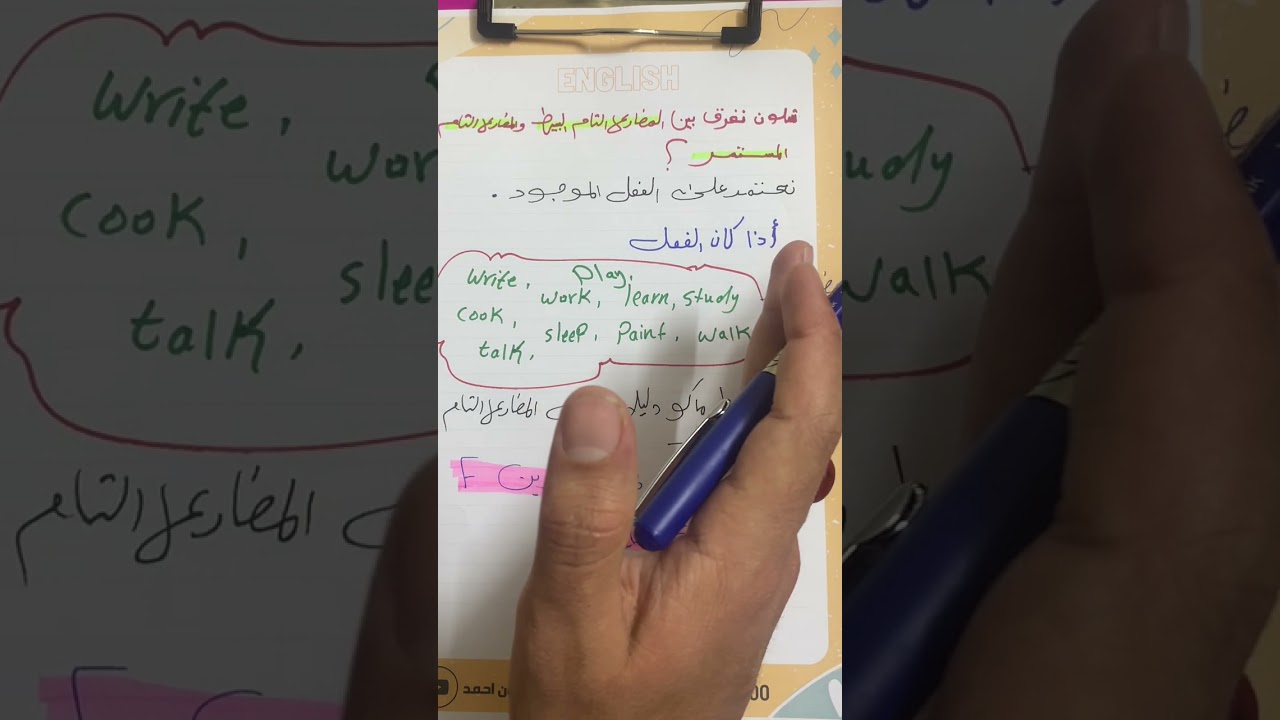 ENGLISH
شلون نفرق بين المضارع التام البسيط والمضارع التام
المستمر ؟
نعتمد على الفعل الموجود .
أذا كان الفعل
write, play,
work, learn, study
cook,
sleep, paint, walk
talk,
ماكو دليل المضارع التام
F
احمد